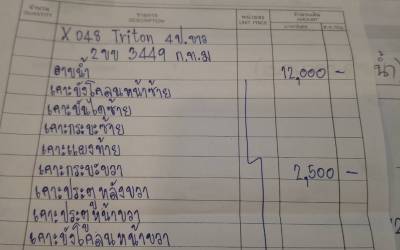 จำนวน QUANTITY รายการ DESCRIPTION หน่วยละ UNIT PRICE จำนวนเงิน AMOUNT
X 048 Triton 4ป.ขาว
2ขข 3449 ก.ท.ม
อาบน้ำ 12,000 -
เคาะบังโคลนหน้าซ้าย
เคาะบันไดซ้าย
เคาะกระบะซ้าย
เคาะแผงท้าย
เคาะกระบะขวา 2,500 -
เคาะประตูหลังขวา
เคาะประตูหน้าขวา
เคาะบังโคลนหน้าขวา